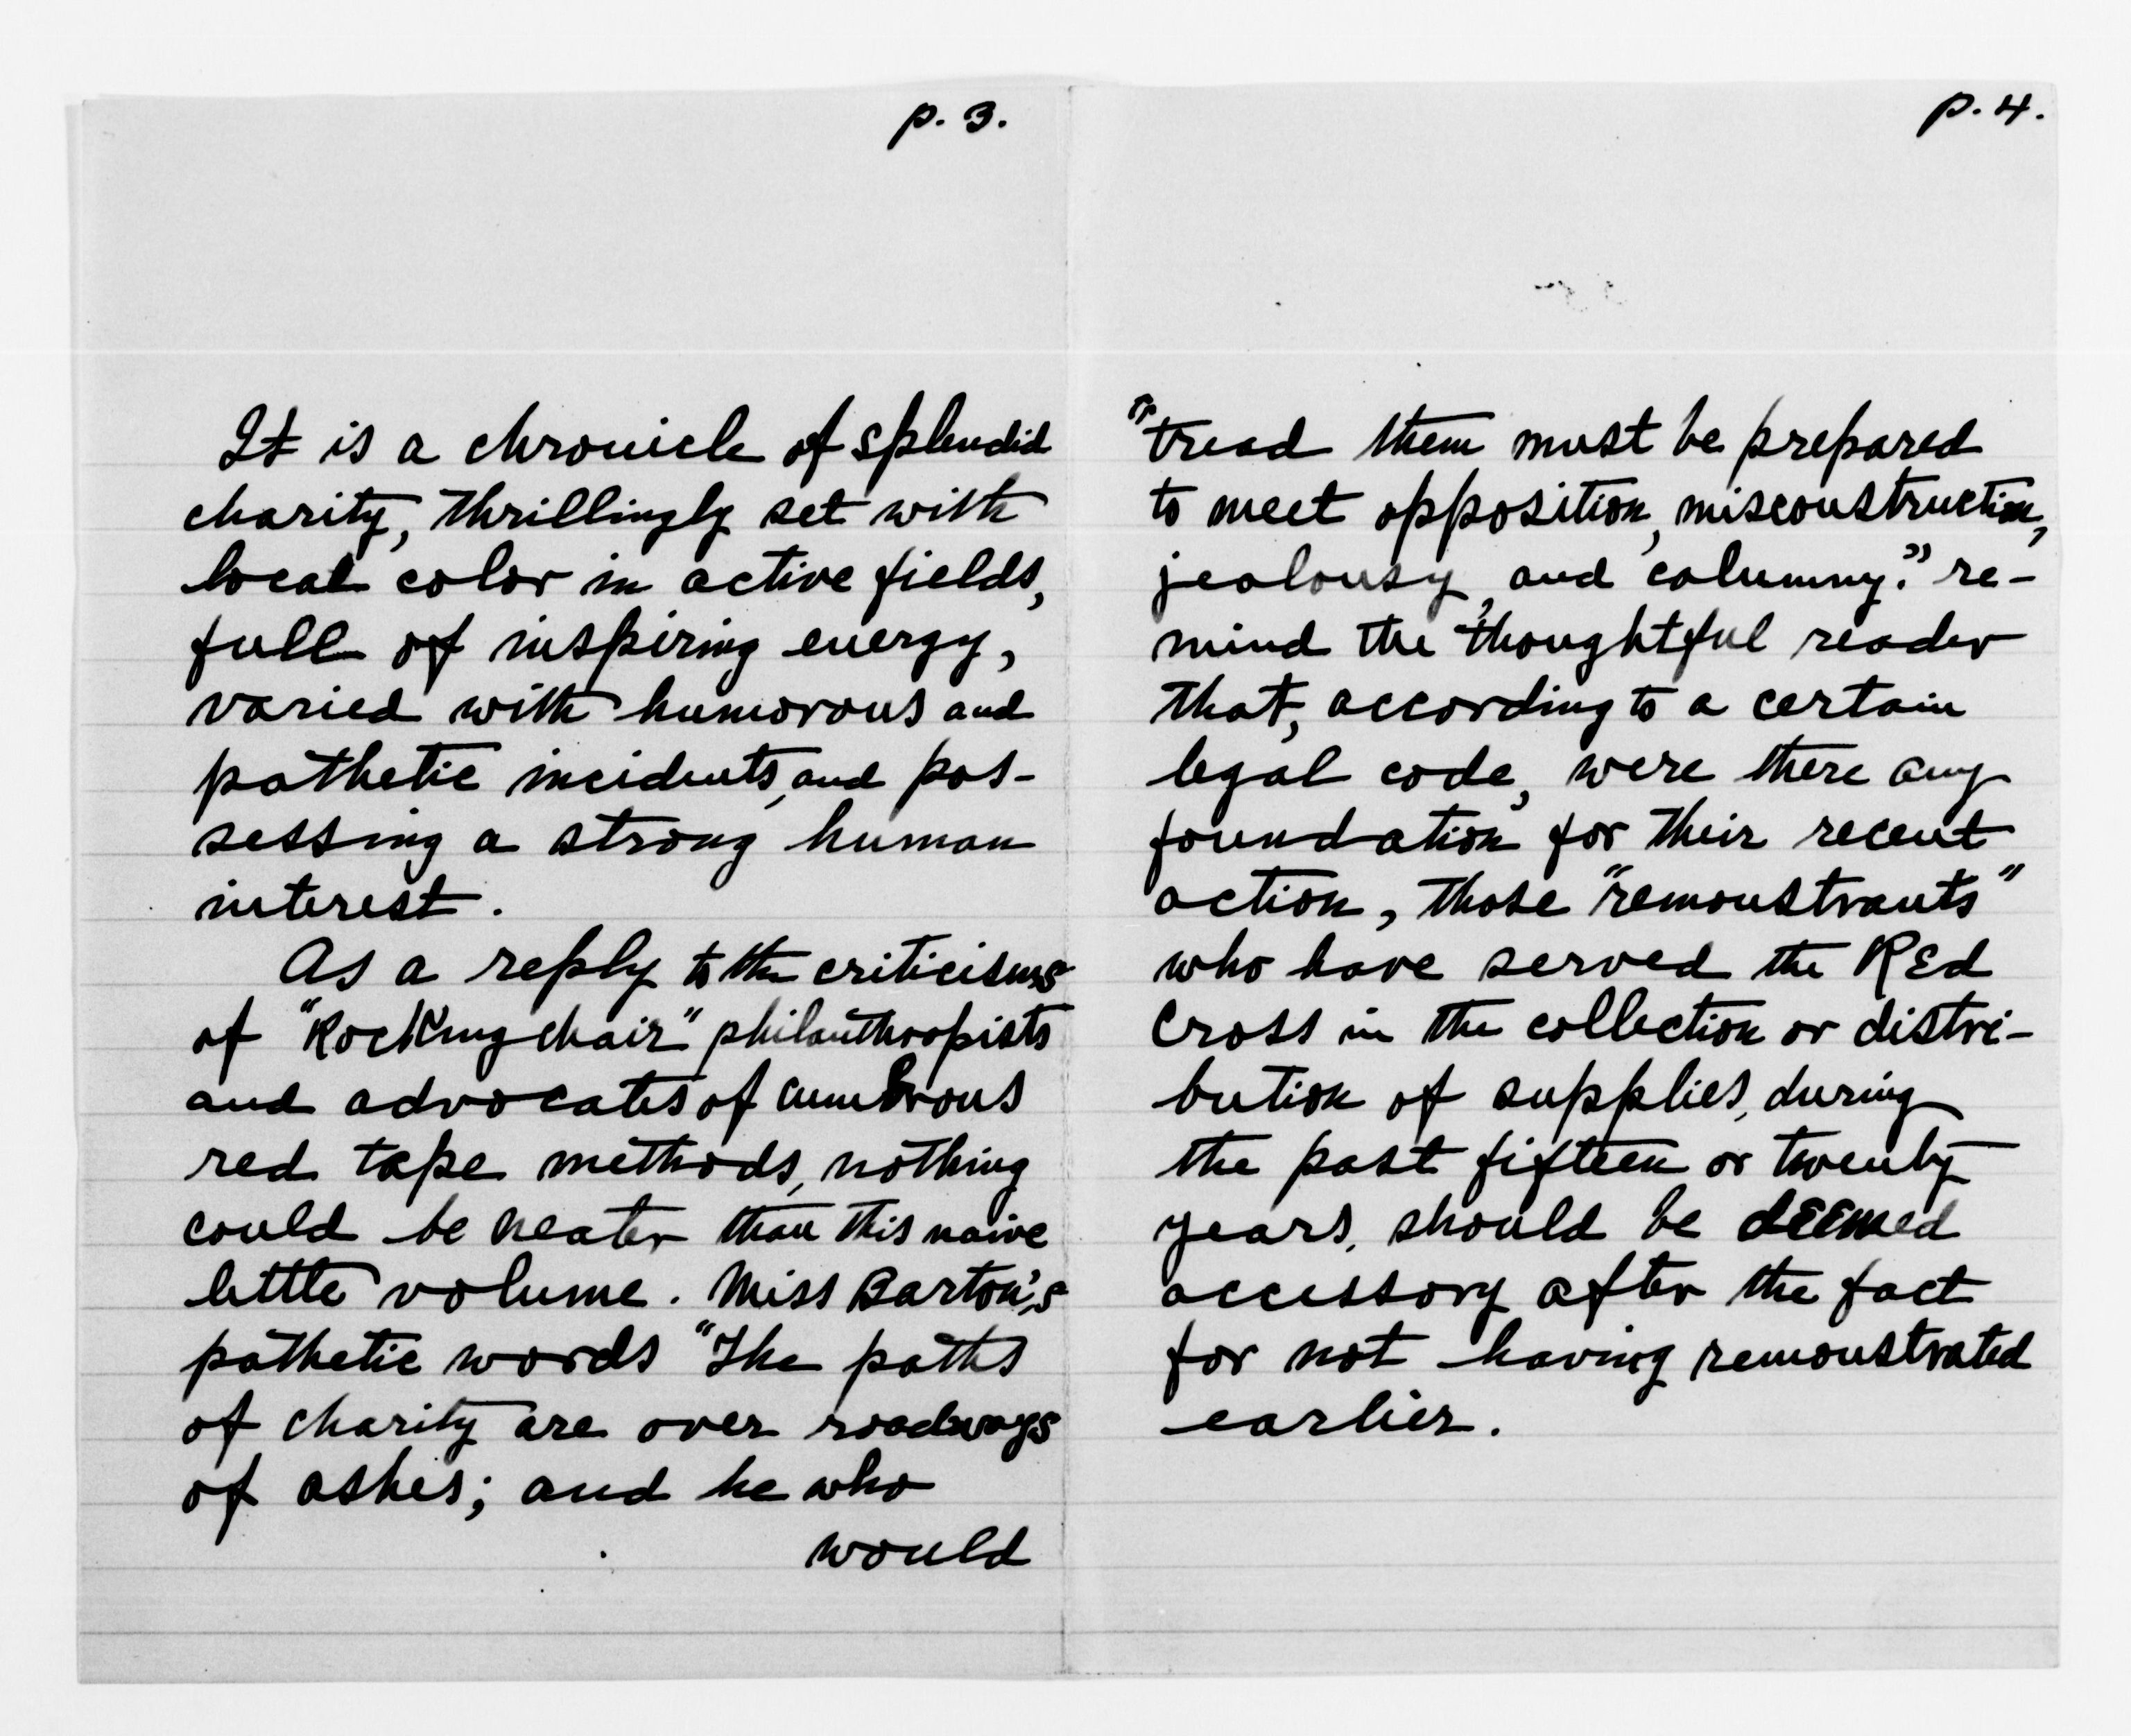 p. 3.
It is a chronicle of splendid
charity, thrillingly set with
local color in active fields,
full of inspiring energy,
varied with humorous and
pathetic incidents, and pos-
sessing a strong human
interest.
As a reply to the criticisms
of "Rocking chair" philanthropists
and advocates of cumbrous
red tape methods, nothing
could be neater than this naive
little volume. Miss Barton's
pathetic words "The paths
of charity are over roadways
of ashes; and he who
would
p. 4.
"tread them must be prepared
to meet opposition, misconstruction,
jealousy, and calumny." re-
mind the thoughtful reader
that, according to a certain
legal code, were there any
foundation for their recent
action, those "remonstrants"
who have served the Red
Cross in the collection or distri-
bution of supplies, during
the past fifteen or twenty
years, should be deemed
accessory after the fact
for not having remonstrated
earlier.